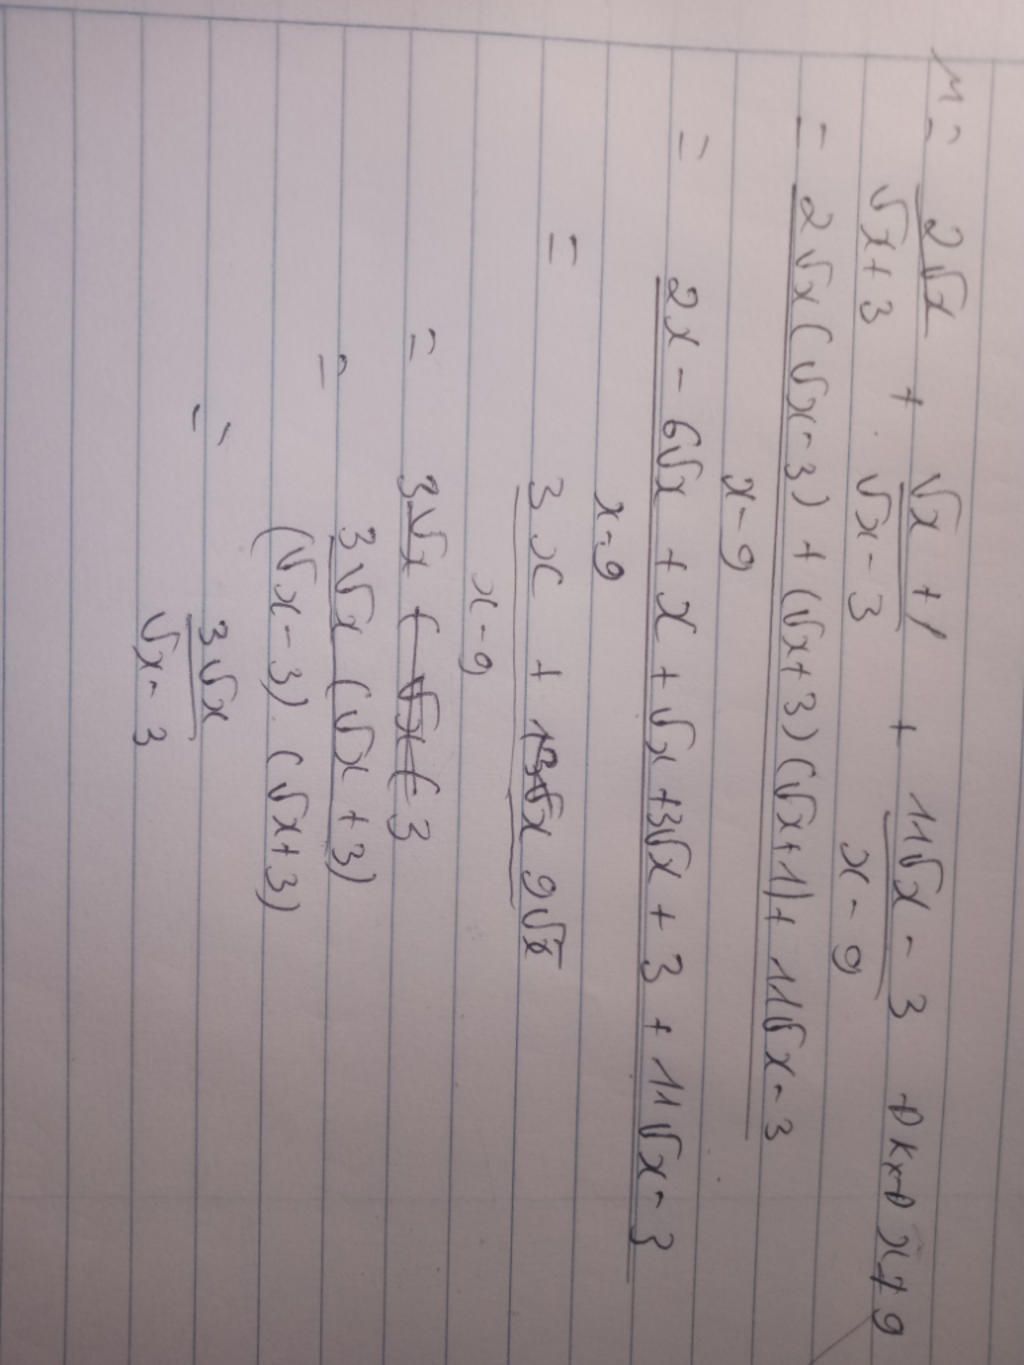 M = 2√x / √x+3 + √x+1 / √x-3 + 11√x-3 / x-9 ĐK x>0 x≠9
= 2√x(√x-3) + (√x+3)(√x+1) + 11√x-3 / x-9
= 2x - 6√x + x + √x + 3√x + 3 + 11√x - 3 / x-9
= 3x + 9√x / x-9
= 3√x
= 3√x (√x+3) / (√x-3) (√x+3)
= 3√x / √x-3